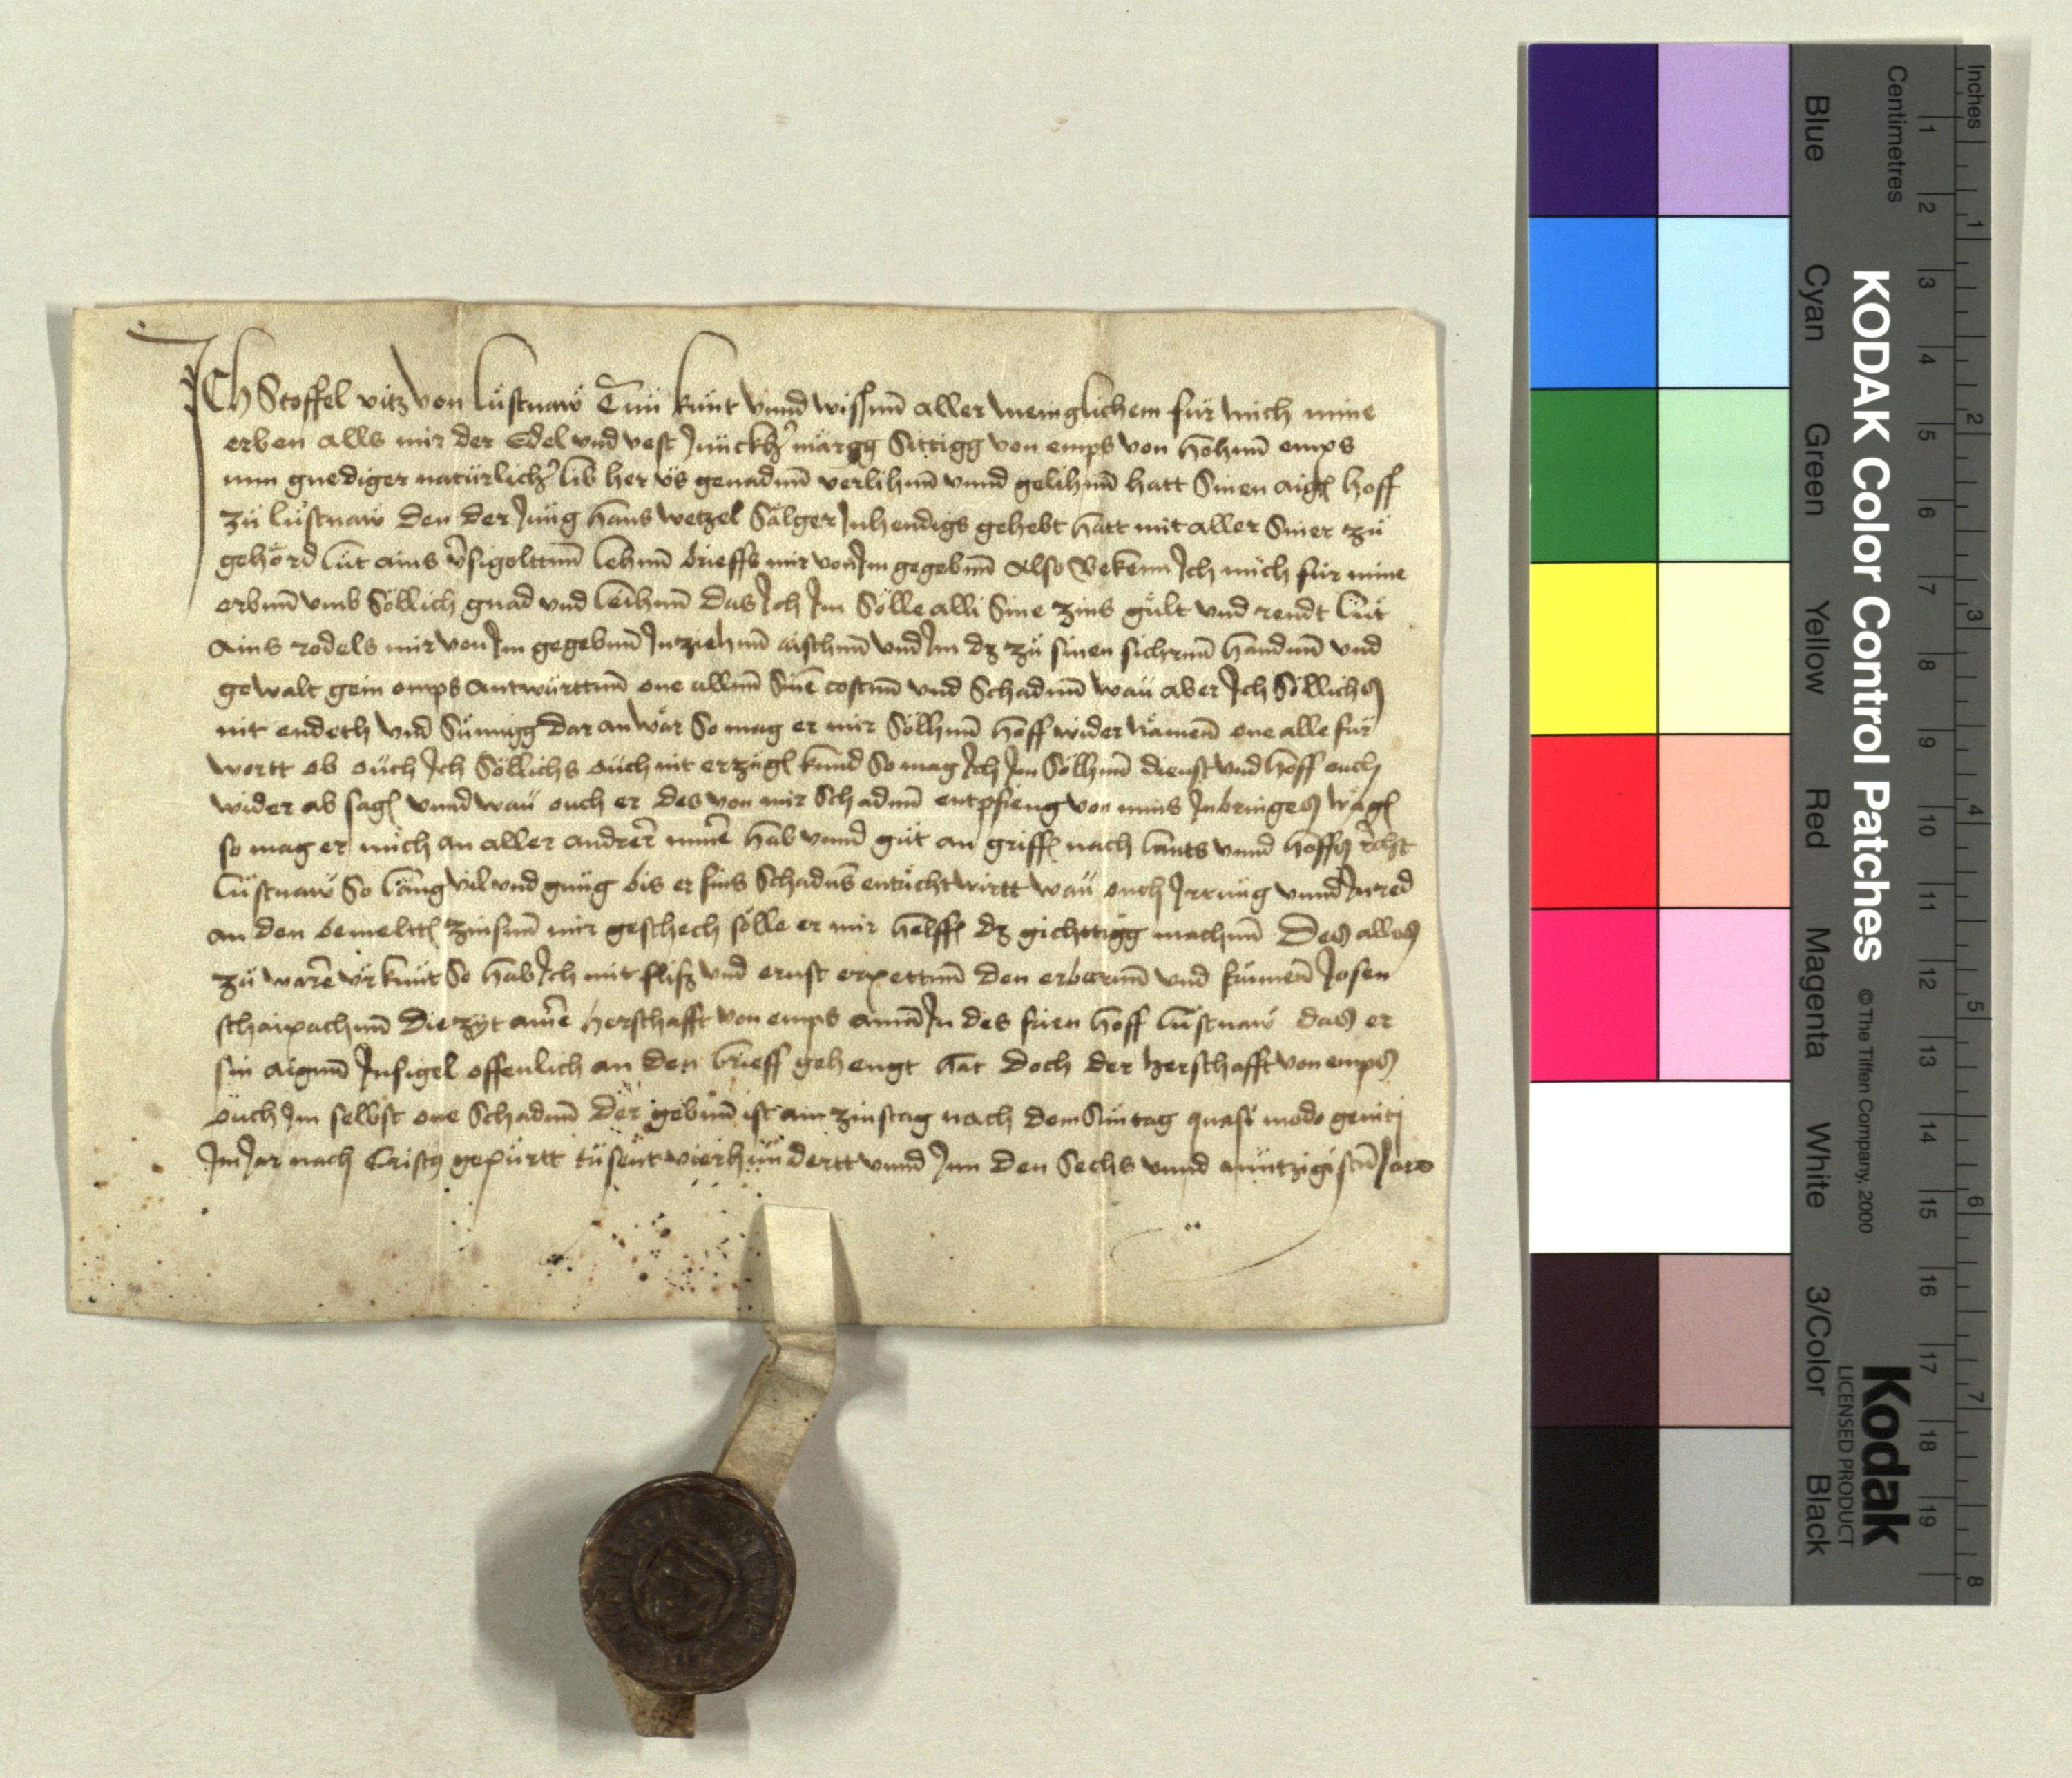 ICh Stoffel vitz von lustnaw Tuͤn kunt vnnd wissnn aller meinglichem für mich mine
erben alls mir der Edel vnd vest Junckhʼ märgg Sittigg von emps von hohnn emps
min gnediger natürlichʼ lib her us genadnn verlihnn vnnd gelihnn hatt Sinen aigen hoff
zuͤ lustnaw den der Jung hans wetzel Sälger Inhendigs gehebt hatt mit aller Siner zuͤ
gehörd lut ains vsigolttnn lehnn brieffs mir von Im gegebnn Also Bekenn Ich mich für mine
erbnn vmb Söllich gnad vnd leihnn das Ich Im Sölle alli Sine zins gült vnd rendt lut
ains rodels mir von Im gegebnn Inziehnn aischnn vnd Im dz zuͤ sinen sichrnn handnn vnd
gewalt gein emps antwürttnn one allnn Sinē costnn vnd Schadnn wau aber Ich Söllichs
nit endeth vnd Sümigg dar an wär So mag er mir Sölhnn hoff wider nämenn one alle für
wortt ob ouch Ich Söllichs ouch nit erzügen kund So mag Ich Im Sölhnn dienst vnd hoff ouch
wider ab sagen vnnd wau ouch er des von mir Schadnn entpfieng von mins Inbringens wägen
so mag er mich an aller andrer minē hab vnnd guͤt an griffen nach lants vnnd hoffs recht
lustnaw So lang vil vnd gnug bis er sins Schadns entricht wirtt wau ouch Irrung vnnd Inred
an den bemeltten zinsnn mir geschech sölle er mir helffen dz gichttigg machnn Des alles
zuͤ warē vrkunt So hab Ich mit fliß vnd ernst erpettnn den erbernn vnd frumenn Josen
schaipachnn die zyt miner herschafft von emps amā In des frien hoff lustnaw das er
sin aignn Insigel offenlich an den brieff gehengt hat doch der herschafft von emps
ouch Im selbst one Schadnn der gebnn ist am zinstag nach dem Suntag quasi modo geniti
Im Jar nach Cristy gepürtt tusent vierhundertt vnnd Inn den Sechs vnnd nüntzigistn Jare
Inches
Centimetres
1 2 3 4 5 6 7 8 9 10 11 12 13 14 15 16 17 18 19
1 2 3 4 5 6 7 8
KODAK Color Control Patches © The Tiffen Company, 2000
Kodak
LICENSED PRODUCT
Blue Cyan Green Yellow Red Magenta White 3/Color Black